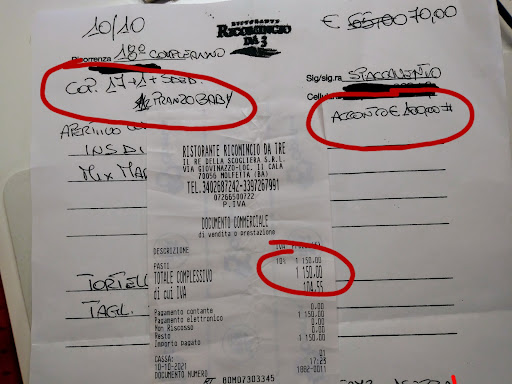 10/10
RISTORANTE
RICOMINCIO
DA 3
€ 70,00
Ricorrenza 18° COMPLEANNO
COP. 17+1+
PRANZO BABY
Sig/sig.ra
Cellula
ACCONTO €
APERITIVO CO
INSA
MIX MA
TORTELL
TAGL.
RISTORANTE RICOMINCIO DA TRE
IL RE DELLA SCOGLIERA S.R.L.
VIA GIOVINAZZO-LOC. II CALA
70056 MOLFETTA (BA)
TEL.3402687242-3397267991
07266500722
P.IVA
DOCUMENTO COMMERCIALE
di vendita o prestazione
DESCRIZIONE IVA
PASTI 10% 1 150.00
TOTALE COMPLESSIVO 1 150.00
di cui IVA 104.55
Pagamento contante 0.00
Pagamento elettronico 1 150.00
Non Riscosso 0.00
Resto 0.00
1 150.00
CASSA: 01
10-10-2021 17:23
DOCUMENTO NUMERO 1062-0011
RT